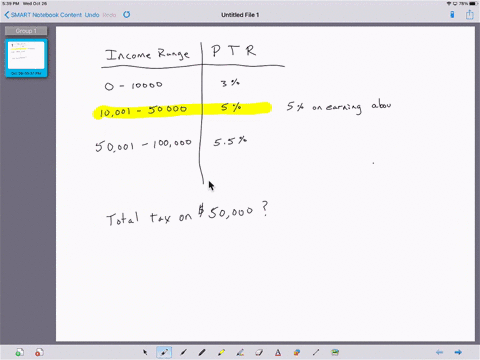 5:39 PM Wed Oct 26
78%
SMART Notebook Content Undo
Untitled File 1
Group 1
Income Range PTR
0 - 10000 3%
10,001 - 50000 5% 5% on earning abou
50,001 - 100,000 5.5%
Total tax on $50,000 ?